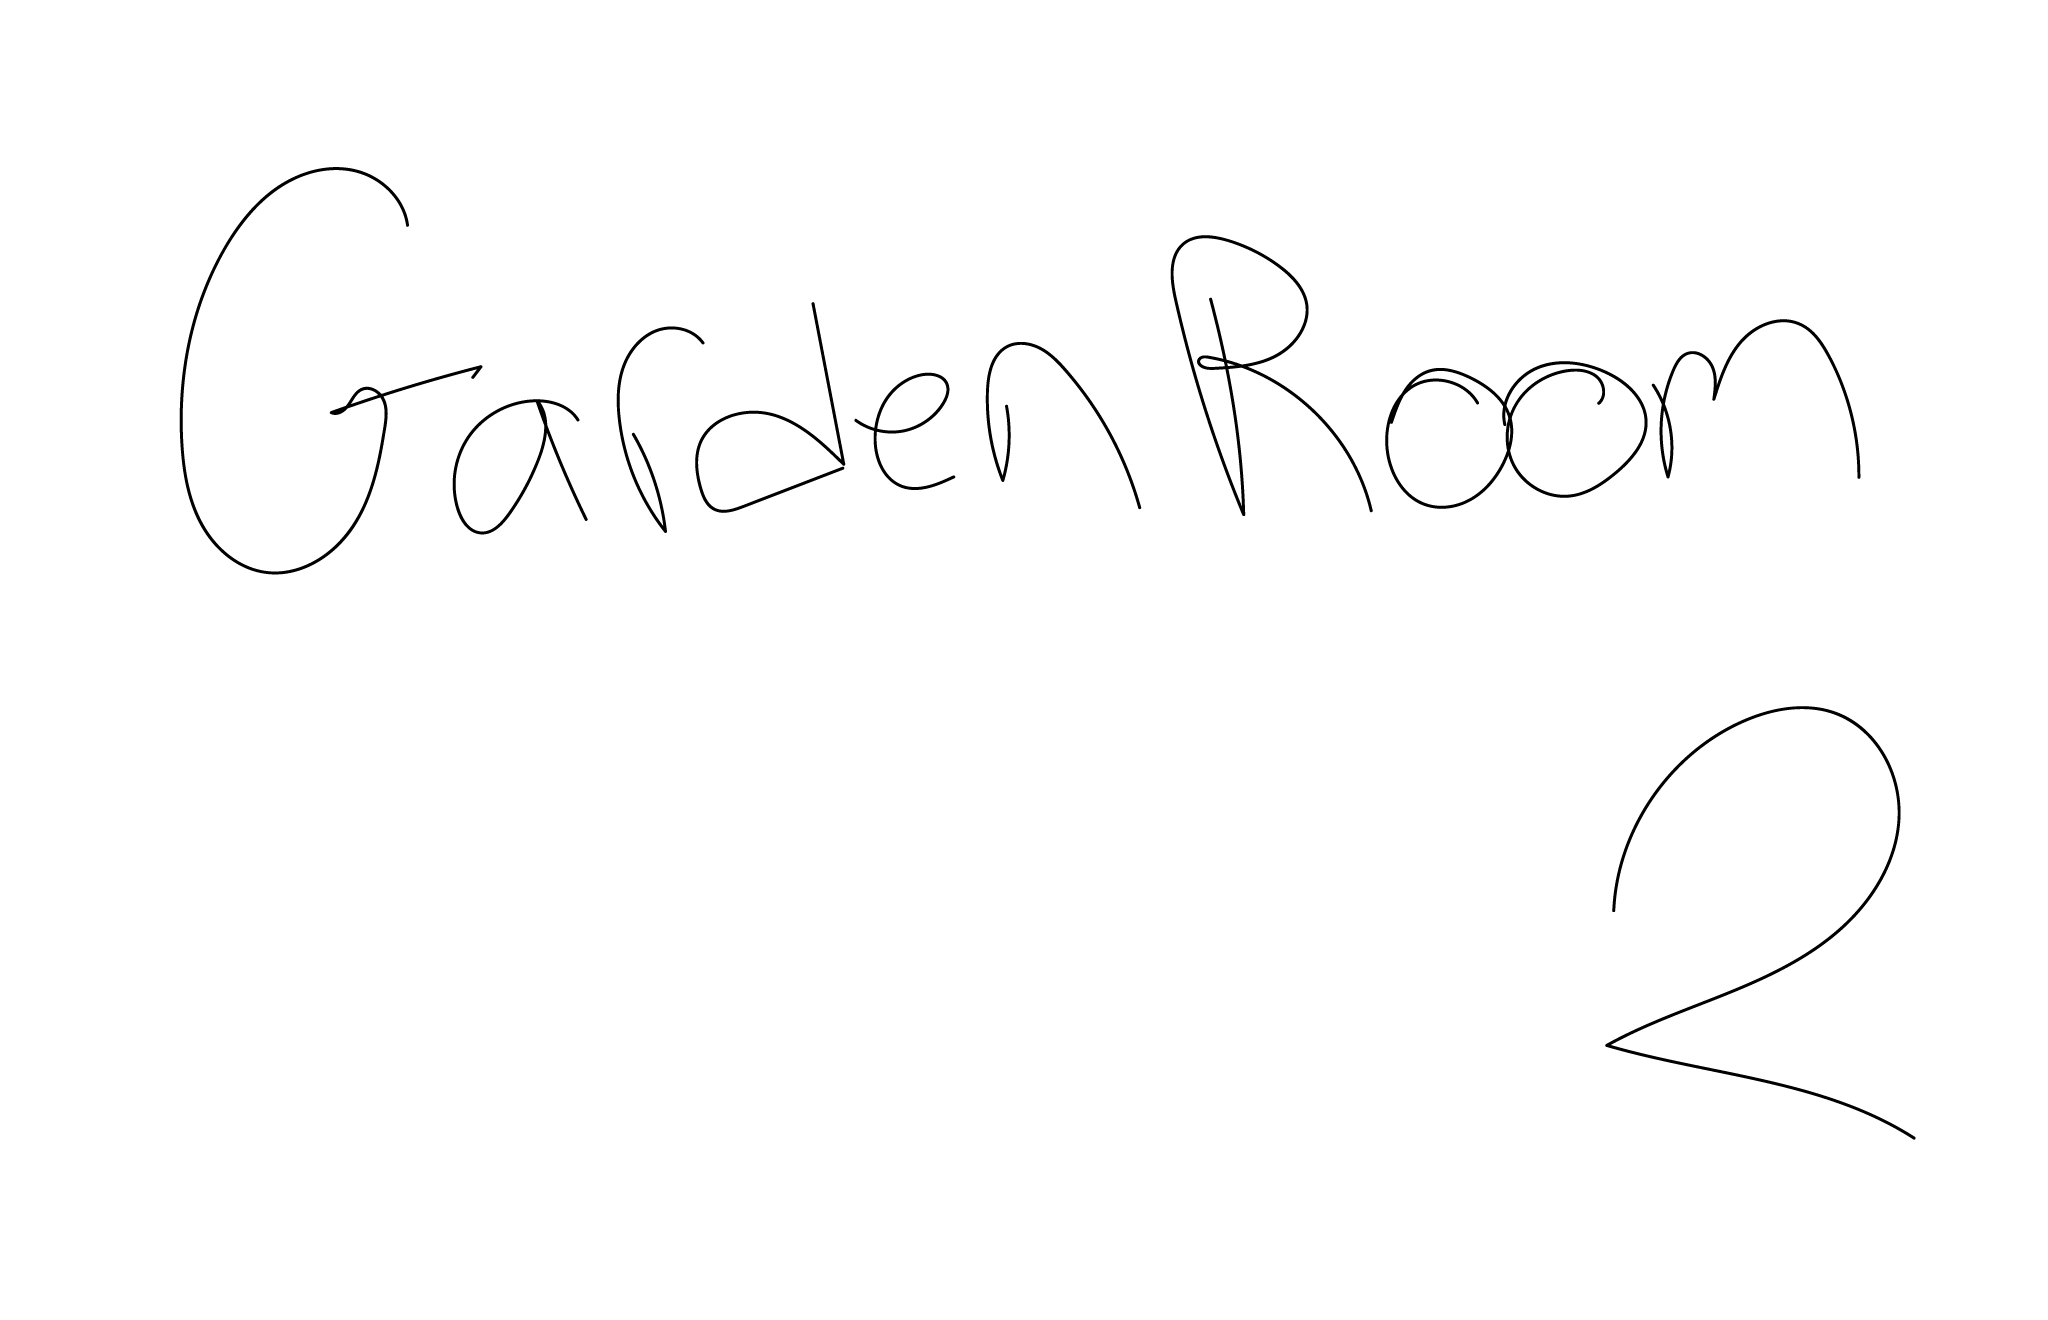 Garden Room
2